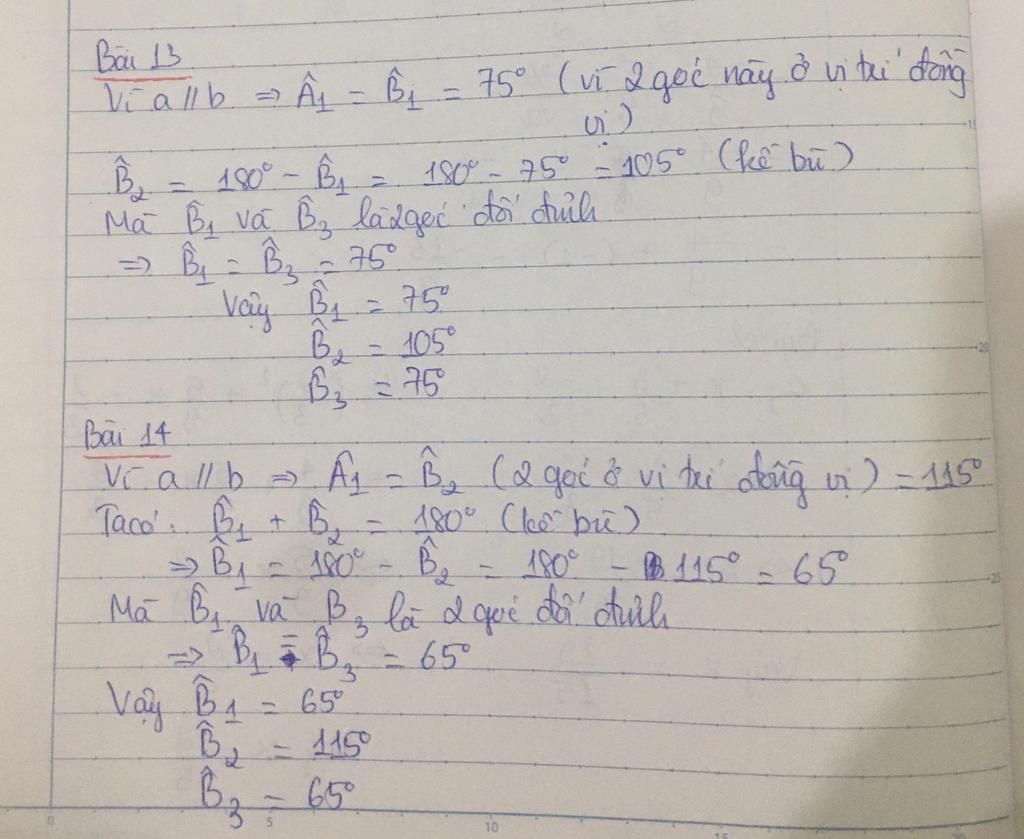 Bài 13
Vì a // b ⇒ Â₁ = B̂₁ = 75° (vì 2 góc này ở vị trí đồng
vị)
B̂₂ = 180° - B̂₁ = 180° - 75° = 105° (kề bù)
Mà B̂₁ và B̂₃ là 2 góc đối đỉnh
⇒ B̂₁ = B̂₃ = 75°
Vậy B̂₁ = 75°
B̂₂ = 105°
B̂₃ = 75°
Bài 14
Vì a // b ⇒ Â₁ = B̂₂ (2 góc ở vị trí đồng vị) = 115°
Ta có: B̂₁ + B̂₂ = 180° (kề bù)
⇒ B̂₁ = 180° - B̂₂ = 180° - 115° = 65°
Mà B̂₁ và B₃ là 2 góc đối đỉnh
⇒ B̂₁ = B̂₃ = 65°
Vậy B̂₁ = 65°
B̂₂ = 115°
B̂₃ = 65°
0 5 10 15
20
25